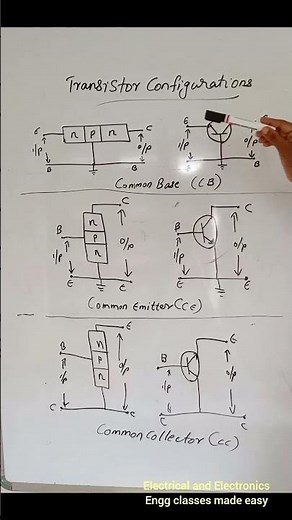 Transistor Configurations
E n p n C E
i/p o/p i/p o/p
B B B B
Common Base (CB)
C C
n
B P B
n
i/p o/p i/p o/p
E E E E
Common Emitter (CE)
E E
n
B P B
n
i/p o/p i/p o/p
C C C C
Common Collector (CC)
Electrical and Electronics
Engg classes made easy